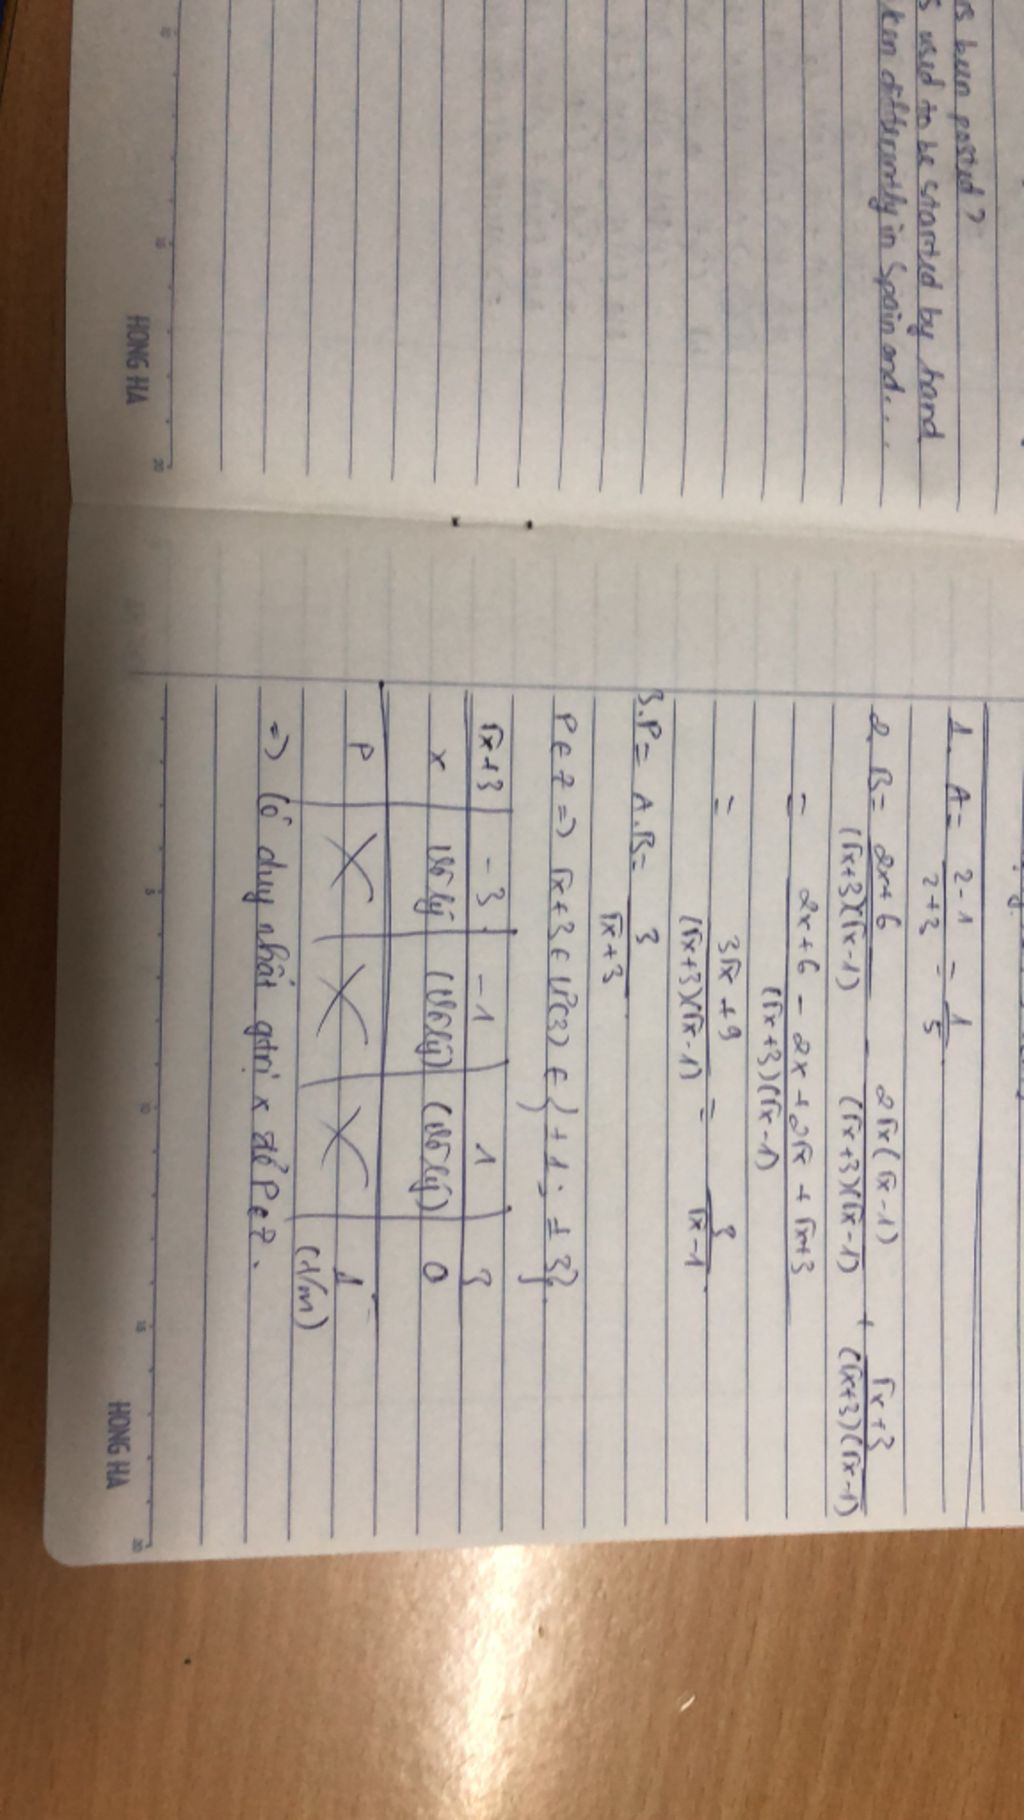 as been posted?
s used to be started by hand
ken differently in Spain and...
HONG HA
1. A = 2-1/2+3 = 1/5
2. B = 2x+6/(√x+3)(√x-1) - 2√x(√x-1)/(√x+3)(√x-1) + √x+3/(√x+3)(√x-1)
= 2x+6 - 2x + 2√x + √x+3/(√x+3)(√x-1)
= 3√x+9/(√x+3)(√x-1) = 3/√x-1.
3. P = A.B = 3/√x+3
P ∈ Z => √x+3 ∈ Ư(3) ∈ {±1; ±3}.
√x+3 -3 -1 1 3
x Vô lý (Vô lý) (Vô lý) 0
P X X X 1
(t/m)
=> Có duy nhất gtrị x để P ∈ Z.
5 10 15 20
HONG HA